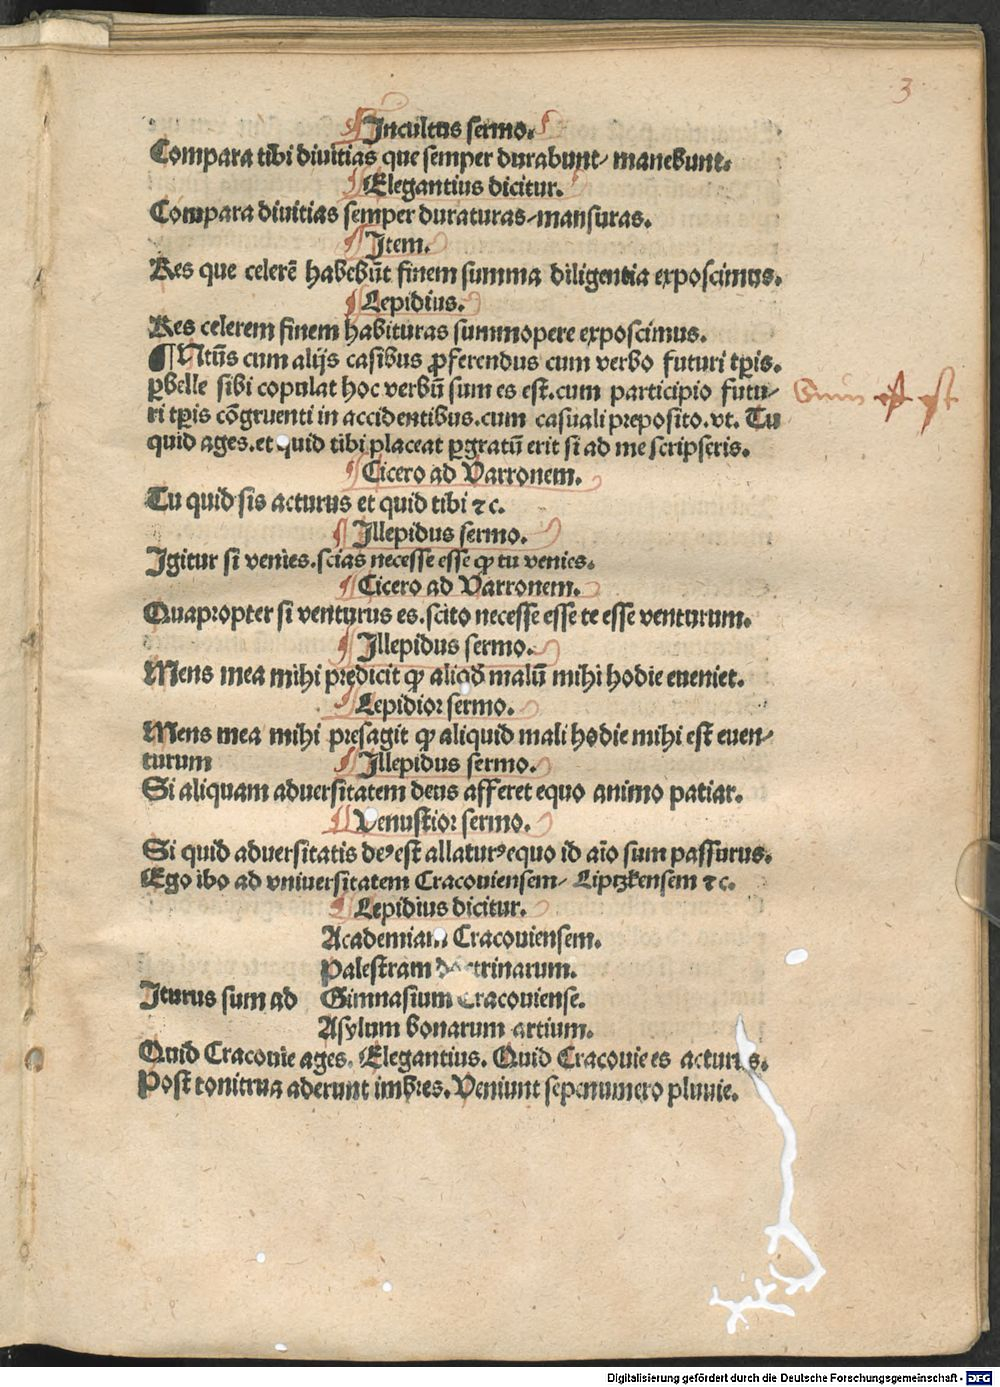 3
¶Incultus sermo.
Compara tibi diuitias que semper durabunt/ manebunt.
¶Elegantius dicitur.
Compara diuitias semper duraturas/mansuras.
¶Item.
Res que celerē habebūt finem summa diligentia exposcimus.
¶Lepidius.
Res celerem finem habituras summopere exposcimus.
¶Ntūs cum alijs casibus ꝓferendus cum verbo futuri tꝑis.
ꝑbelle sibi copulat hoc verbū sum es est.cum participio futu/
ri tꝑis cōgruenti in accidentibus.cum casuali preposito.vt. Tu
quid ages.et quid tibi placeat ꝑgratū erit si ad me scripseris.
Sum est est
¶Cicero ad Varronem.
Tu quid sis acturus et quid tibi ⁊ c.
¶Illepidus sermo.
Igitur si venies.scias necesse esse ꝙ tu venies.
¶Cicero ad Varronem.
Quapropter si venturus es.scito necesse esse te esse venturum.
¶Illepidus sermo.
Mens mea mihi predicit ꝙ aliqđ malū mihi hodie eueniet.
¶Lepidior sermo.
Mens mea mihi presagit ꝙ aliquid mali hodie mihi est euen/
turum ¶Illepidus sermo.
Si aliquam aduersitatem deus afferet equo animo patiar.
¶Venustior sermo.
Si quid aduersitatis deꝰ est allaturꝰ equo id aīo sum passurus.
Ego ibo ad vniuersitatem Cracouiensem/ Liptzkensem ⁊ c.
¶Lepidius dicitur.
Academiam Cracouiensem.
Palestram doctrinarum.
Iturus sum ad Gimnasium Cracouiense.
Asylum bonarum artium.
Quid Cracouie ages. Elegantius. Quid Cracouie es acturus.
Post tonitrua aderunt imbres. Veniunt sepenumero pluuie.
Digitalisierung gefördert durch die Deutsche Forschungsgemeinschaft - DFG